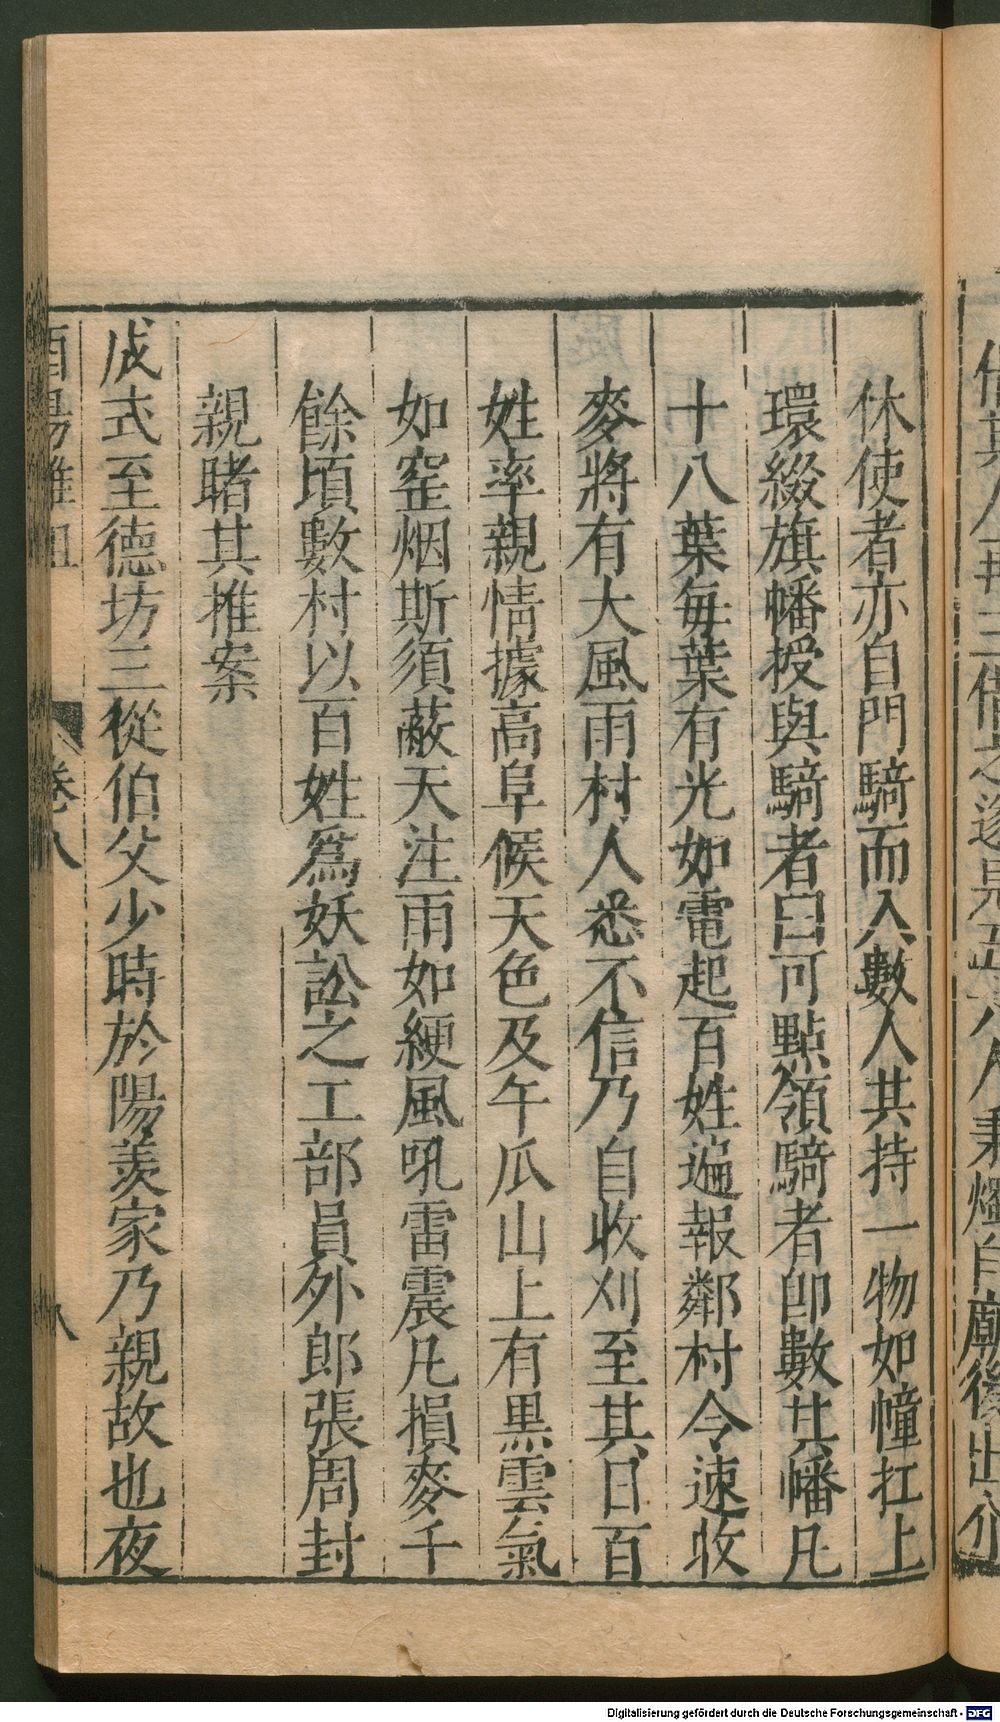 休使者亦自門騎而入數人共持一物如幢扛上
環綴旗幡授與騎者曰可點領騎者卽數其幡凡
十八葉每葉有光如電起百姓遍報鄰村令速收
麥將有大風雨村人悉不信乃自收刈至其日百
姓率親情據高阜候天色及午瓜山上有黑雲氣
如窑烟斯須蔽天注雨如綆風吼雷震凡損麥千
餘頃數村以百姓爲妖訟之工部員外郎張周封
親睹其推案
成式至德坊三從伯父少時於陽羨家乃親故也夜
酉陽雜俎 卷八 八
Digitalisierung gefördert durch die Deutsche Forschungsgemeinschaft - DFG